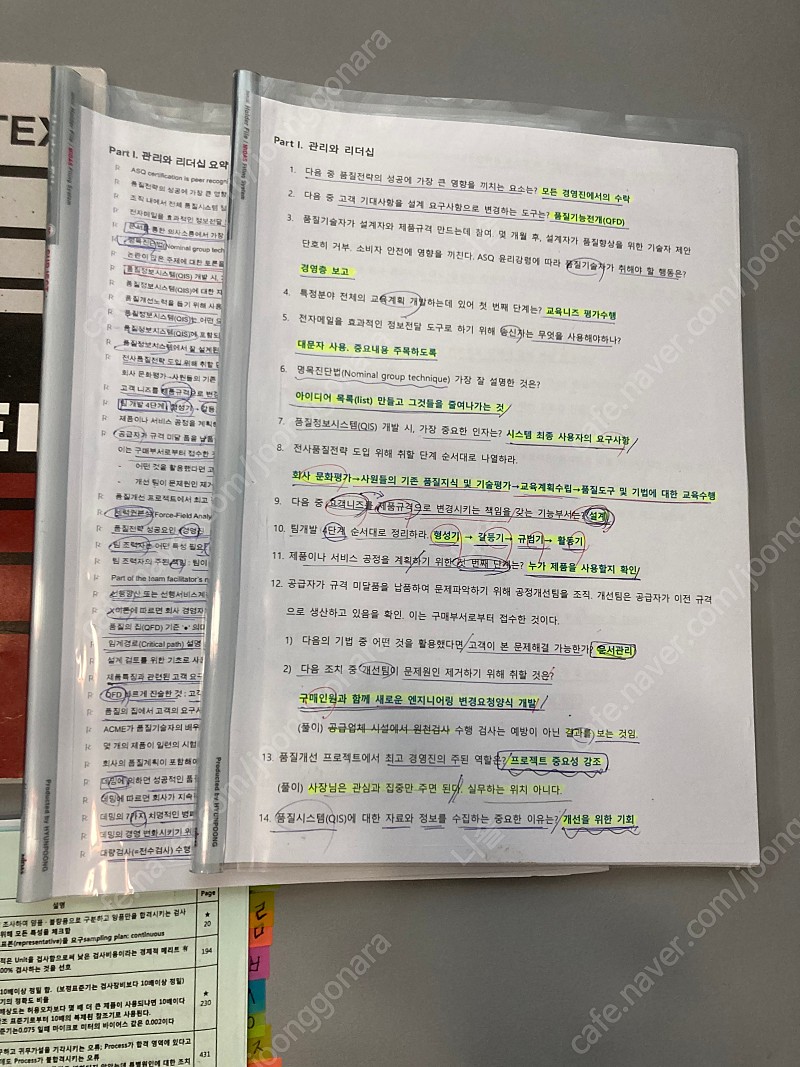 Part I. 관리와 리더십
1. 다음 중 품질전략의 성공에 가장 큰 영향을 끼치는 요소는? 모든 경영진에서의 수락
2. 다음 중 고객 기대사항을 설계 요구사항으로 변경하는 도구는? 품질기능전개(QFD)
3. 품질기술자가 설계자와 제품규격 만드는데 참여. 몇 개월 후, 설계자가 품질향상을 위한 기술자 제안
단호히 거부. 소비자 안전에 영향을 끼친다. ASQ 윤리강령에 따라 품질기술자가 취해야 할 행동은?
경영층 보고
4. 특정분야 전체의 교육계획 개발하는데 있어 첫 번째 단계는? 교육니즈 평가수행
5. 전자메일을 효과적인 정보전달 도구로 하기 위해 송신자는 무엇을 사용해야하나?
대문자 사용. 중요내용 주목하도록
6. 명목진단법(Nominal group technique) 가장 잘 설명한 것은?
아이디어 목록(list) 만들고 그것들을 줄여나가는 것
7. 품질정보시스템(QIS) 개발 시, 가장 중요한 인자는? 시스템 최종 사용자의 요구사항
8. 전사품질전략 도입 위해 취할 단계 순서대로 나열하라.
회사 문화평가→사원들의 기존 품질지식 및 기술평가→교육계획수립→품질도구 및 기법에 대한 교육수행
9. 다음 중 고객니즈를 제품규격으로 변경시키는 책임을 갖는 기능부서는? 설계
10. 팀개발 4단계 순서대로 정리하라. 형성기 → 갈등기 → 규범기 → 활동기
11. 제품이나 서비스 공정을 계획하기 위한 첫 번째 단계는? 누가 제품을 사용할지 확인
12. 공급자가 규격 미달품을 납품하여 문제파악하기 위해 공정개선팀을 조직. 개선팀은 공급자가 이전 규격
으로 생산하고 있음을 확인. 이는 구매부서로부터 접수한 것이다.
1) 다음의 기법 중 어떤 것을 활용했다면 고객이 본 문제해결 가능한가? 문서관리
2) 다음 조치 중 개선팀이 문제원인 제거하기 위해 취할 것은?
구매인원과 함께 새로운 엔지니어링 변경요청양식 개발
(풀이) 공급업체 시설에서 원천검사 수행 검사는 예방이 아닌 결과를 보는 것임.
13. 품질개선 프로젝트에서 최고 경영진의 주된 역할은? 프로젝트 중요성 강조
(풀이) 사장님은 관심과 집중만 주면 된다. 실무하는 위치 아니다.
14. 품질시스템(QIS)에 대한 자료와 정보를 수집하는 중요한 이유는? 개선을 위한 기회
Part I. 관리와 리더십 요약
ASQ certification is peer recogn
품질전략의 성공에 가장 큰 영향
조직 내에서 전체 품질시스템
전자메일을 효과적인 정보전달
문서를 통한 의사소통에서 가장
명목진단법(Nominal group tech
논란이 많은 주제에 대한 토론을
품질정보시스템(QIS) 개발 시,
품질정보시스템(QIS)에 대한 자
품질개선노력을 돕기 위해 사용
품질정보시스템(QIS)는 어떤
품질정보시스템(QIS)에 포함되
품질정보시스템에서 잘 설계된
전사품질전략 도입 위해 취할
회사 문화평가→사원들의 기존
고객 니즈를 제품규격으로 변
팀 개발 4단계: 형성기 → 갈등
제품이나 서비스 공정을 계획
공급자가 규격 미달 품을 납품
이는 구매부서로부터 접수한
- 어떤 것을 활용했다면 고
- 개선 팀이 문제원인 제거
품질개선 프로젝트에서 최고
(Force-Field Analy
품질전략 성공요인
팀 조력자는 어떤 특성 필요
팀 조력자의 주된 책임: 팀이
Part of the team facilitator's
X이론에 따르면 회사 경영자
품질의 집(QFD) 기준
임계경로(Critical path) 설명
설계 검토를 위한 기초로 사용
제품특징과 관련된 고객 요구
QFD 바르게 진술한 것 : 고객
품질의 집에서 고객의 요구사
ACME가 품질기술자의 배우
몇 개의 제품이 일련의 시험
회사의 품질계획이 포함해야
데밍에 의하면 성공적인 품
데밍에 따르면 회사가 지속
데밍의 7가지 치명적인 병폐
데밍의 경영 변화시키기 위
대량검사(=전수검사) 수행
Holder File / MIDAS Filing System
Producted by HYUNPOONG
설명
Page
20
표본(representative)을 요구sampling plan: continuous
194
적은 Unit을 검사함으로써 낮은 검사비용이라는 경제적 메리트
00% 검사하는 것을 선호
10배이상 정밀 함. (보정표준기는 검사장비보다 10배이상 정밀)
기의 정확도 비율
230
431
cafe.naver.com/joonggonara